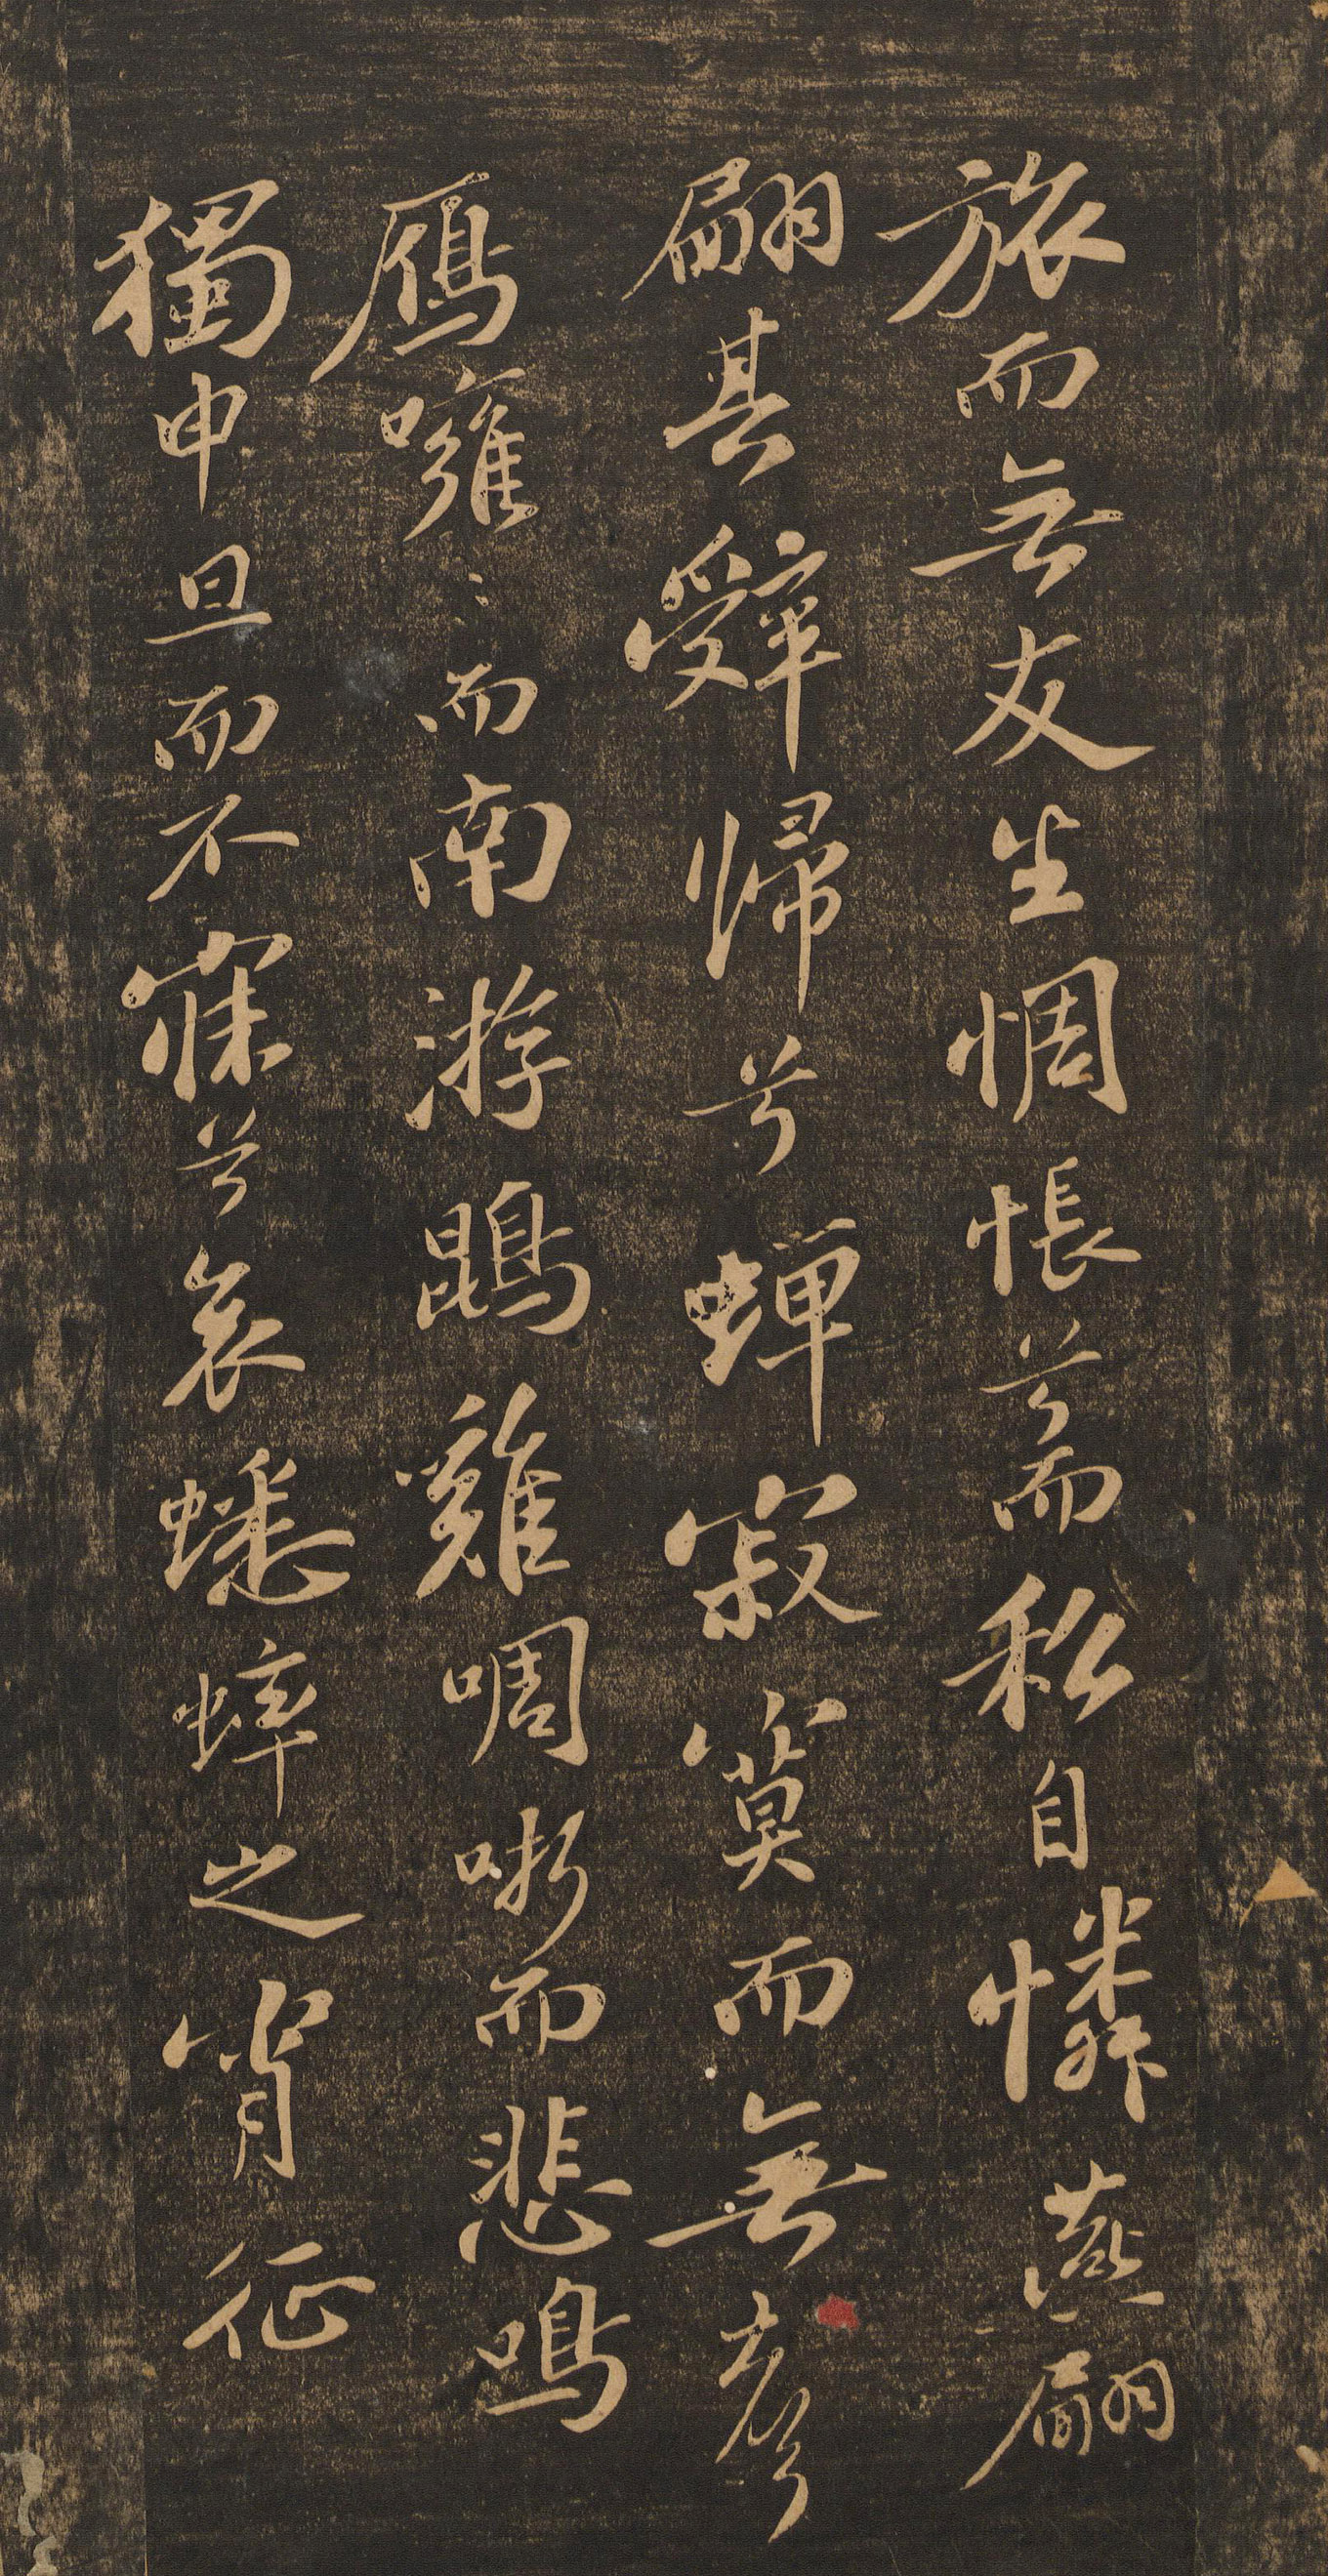 旅而無友生惆悵兮而私自憐燕翩
翩其辭歸兮蟬寂寞而無聲
鴈噰〻而南游鵾雞啁哳而悲鳴
獨申旦而不寐兮哀蟋蟀之宵征